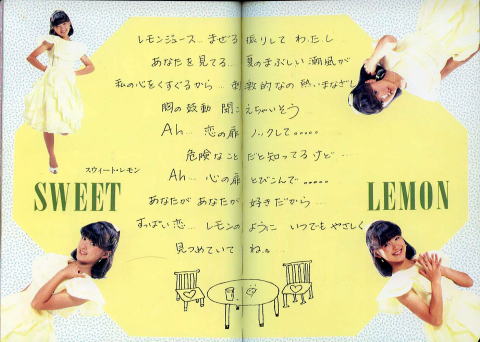 レモンジュース… まぜる 振りして わ.た.し…
あなたを見てる… 夏のまぶしい 潮風が
私の心をくすぐるから… 刺激的なの 熱いまなざし
胸の鼓動 聞こえちゃいそう
Ah… 恋の扉 ノックして……
危険なこと だと知ってるけど…
Ah… 心の扉 とびこんで……
スウィート・レモン
SWEET LEMON
あなたが あなたが 好きだから…
すっぱい恋… レモンのように いつでも やさしく
見つめていて ね。